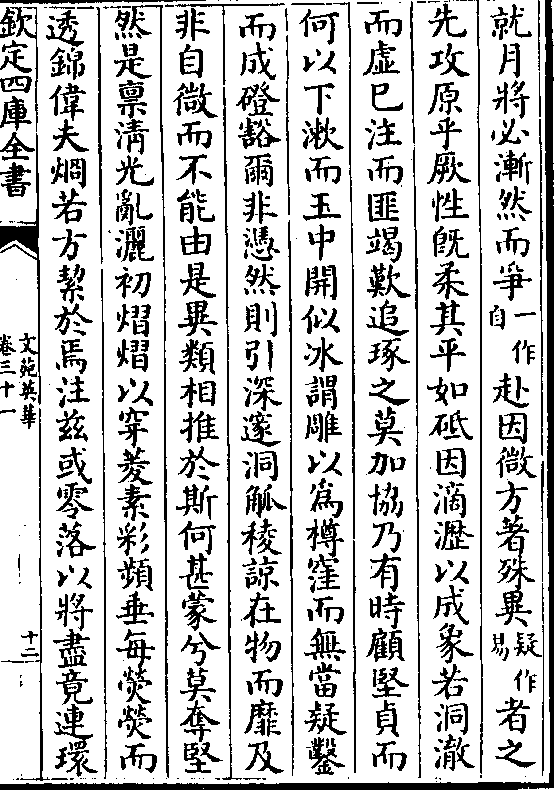 就月將必漸然而爭一作自赴因微方著殊異疑作易者之
先攻原乎厥性旣柔其平如砥因滴瀝以成象若洞澈
而虛已注而匪竭歎追琢之莫加協乃有時顧堅貞而
何以下漱而玉中開似冰謂雕以為樽窪而無當疑鑿
而成磴豁爾非憑然則引深邃洞觚稜諒在物而靡及
非自微而不能由是異類相推於斯何甚蒙兮莫奪堅
然是稟清光亂灑初熠熠以穿菱素彩頻垂每熒熒而
透錦偉夫烱若方絜於焉注兹或零落以將盡竟連環
欽定四庫全書
文苑英華
卷三十一
十二